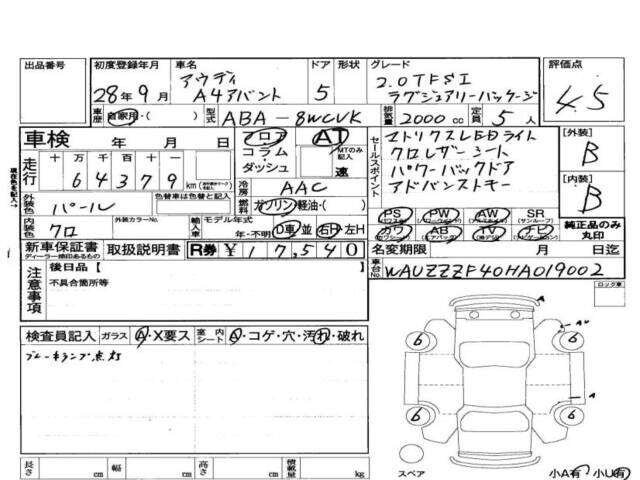 出品番号 初度登録年月 車名 ドア 形状 グレード 評価点
アウディ 2.0TFSI
28年9月 A4アバント 5 ラグジュアリーパッケージ 4.5
車歴 自家用・( ) 型式 ABA-8WCVK 排気量 2000cc 定員 5人
車検 年 月 日 フロア AT セールスポイント マトリクスLEDライト [外装]
十万 万 千 百 十 一 コラム MTのみ記入 クロレザーシート B
走行 64379 km ダッシュ 速 パワーバックドア [内装]
冷房 AAC アドバンストキー B
外装色 パール 色替車は色替と記入 燃料 ガソリン・軽油・( ) PS PW AW SR
内装色 クロ 外装カラーNo. 輸入車 モデル年式 年・不明 D車 並 右H・左H カワ AB TV ナビ 純正品のみ丸印
新車保証書 取扱説明書 R券 ¥17,540 名変期限 月 日迄
ディーラー捺印あるもの
注意事項 後日品【 車台No. WAUZZZF40HA019002
不具合箇所等 ロック車
検査員記入 ガラス A・X要ス 室内シート A・コゲ・穴・汚れ・破れ
ブレーキランプ点灯
A
AU
6 6
A
6 6
長さ cm 幅 cm 高さ cm 積載量 kg スペア 小A有・小U有